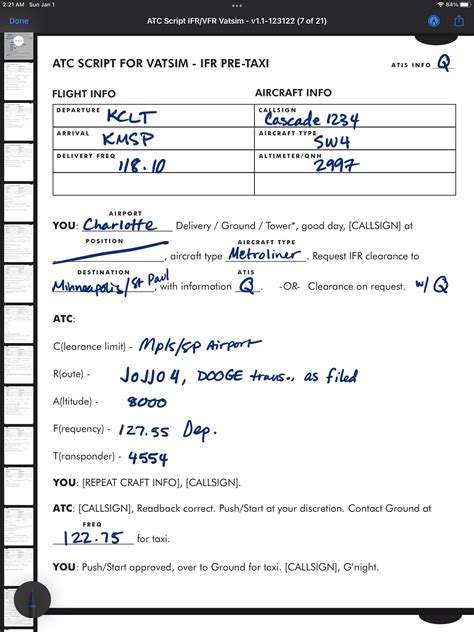 2:21 AM Sun Jan 1
84%
Done
ATC Script IFR/VFR Vatsim - v1.1-123122 (7 of 21)
ATC SCRIPT FOR VATSIM - IFR PRE-TAXI
ATIS INFO Q
FLIGHT INFO
AIRCRAFT INFO
DEPARTURE KCLT
CALLSIGN Cascade 1234
ARRIVAL KMSP
AIRCRAFT TYPE SW4
DELIVERY FREQ 118.10
ALTIMETER/QNH 2997
AIRPORT
YOU: Charlotte Delivery / Ground / Tower*, good day, [CALLSIGN] at
POSITION AIRCRAFT TYPE
, aircraft type Metroliner. Request IFR clearance to
DESTINATION ATIS
Minneapolis/St Paul, with information Q. -OR- Clearance on request. w/Q
ATC:
C(learance limit) - Mpls/SP Airport
R(oute) - JOJJO4, DOOGE trans., as filed
A(ltitude) - 8000
F(requency) - 127.55 Dep.
T(ransponder) - 4554
YOU: [REPEAT CRAFT INFO], [CALLSIGN].
ATC: [CALLSIGN], Readback correct. Push/Start at your discretion. Contact Ground at
FREQ
122.75 for taxi.
YOU: Push/Start approved, over to Ground for taxi. [CALLSIGN], G'night.